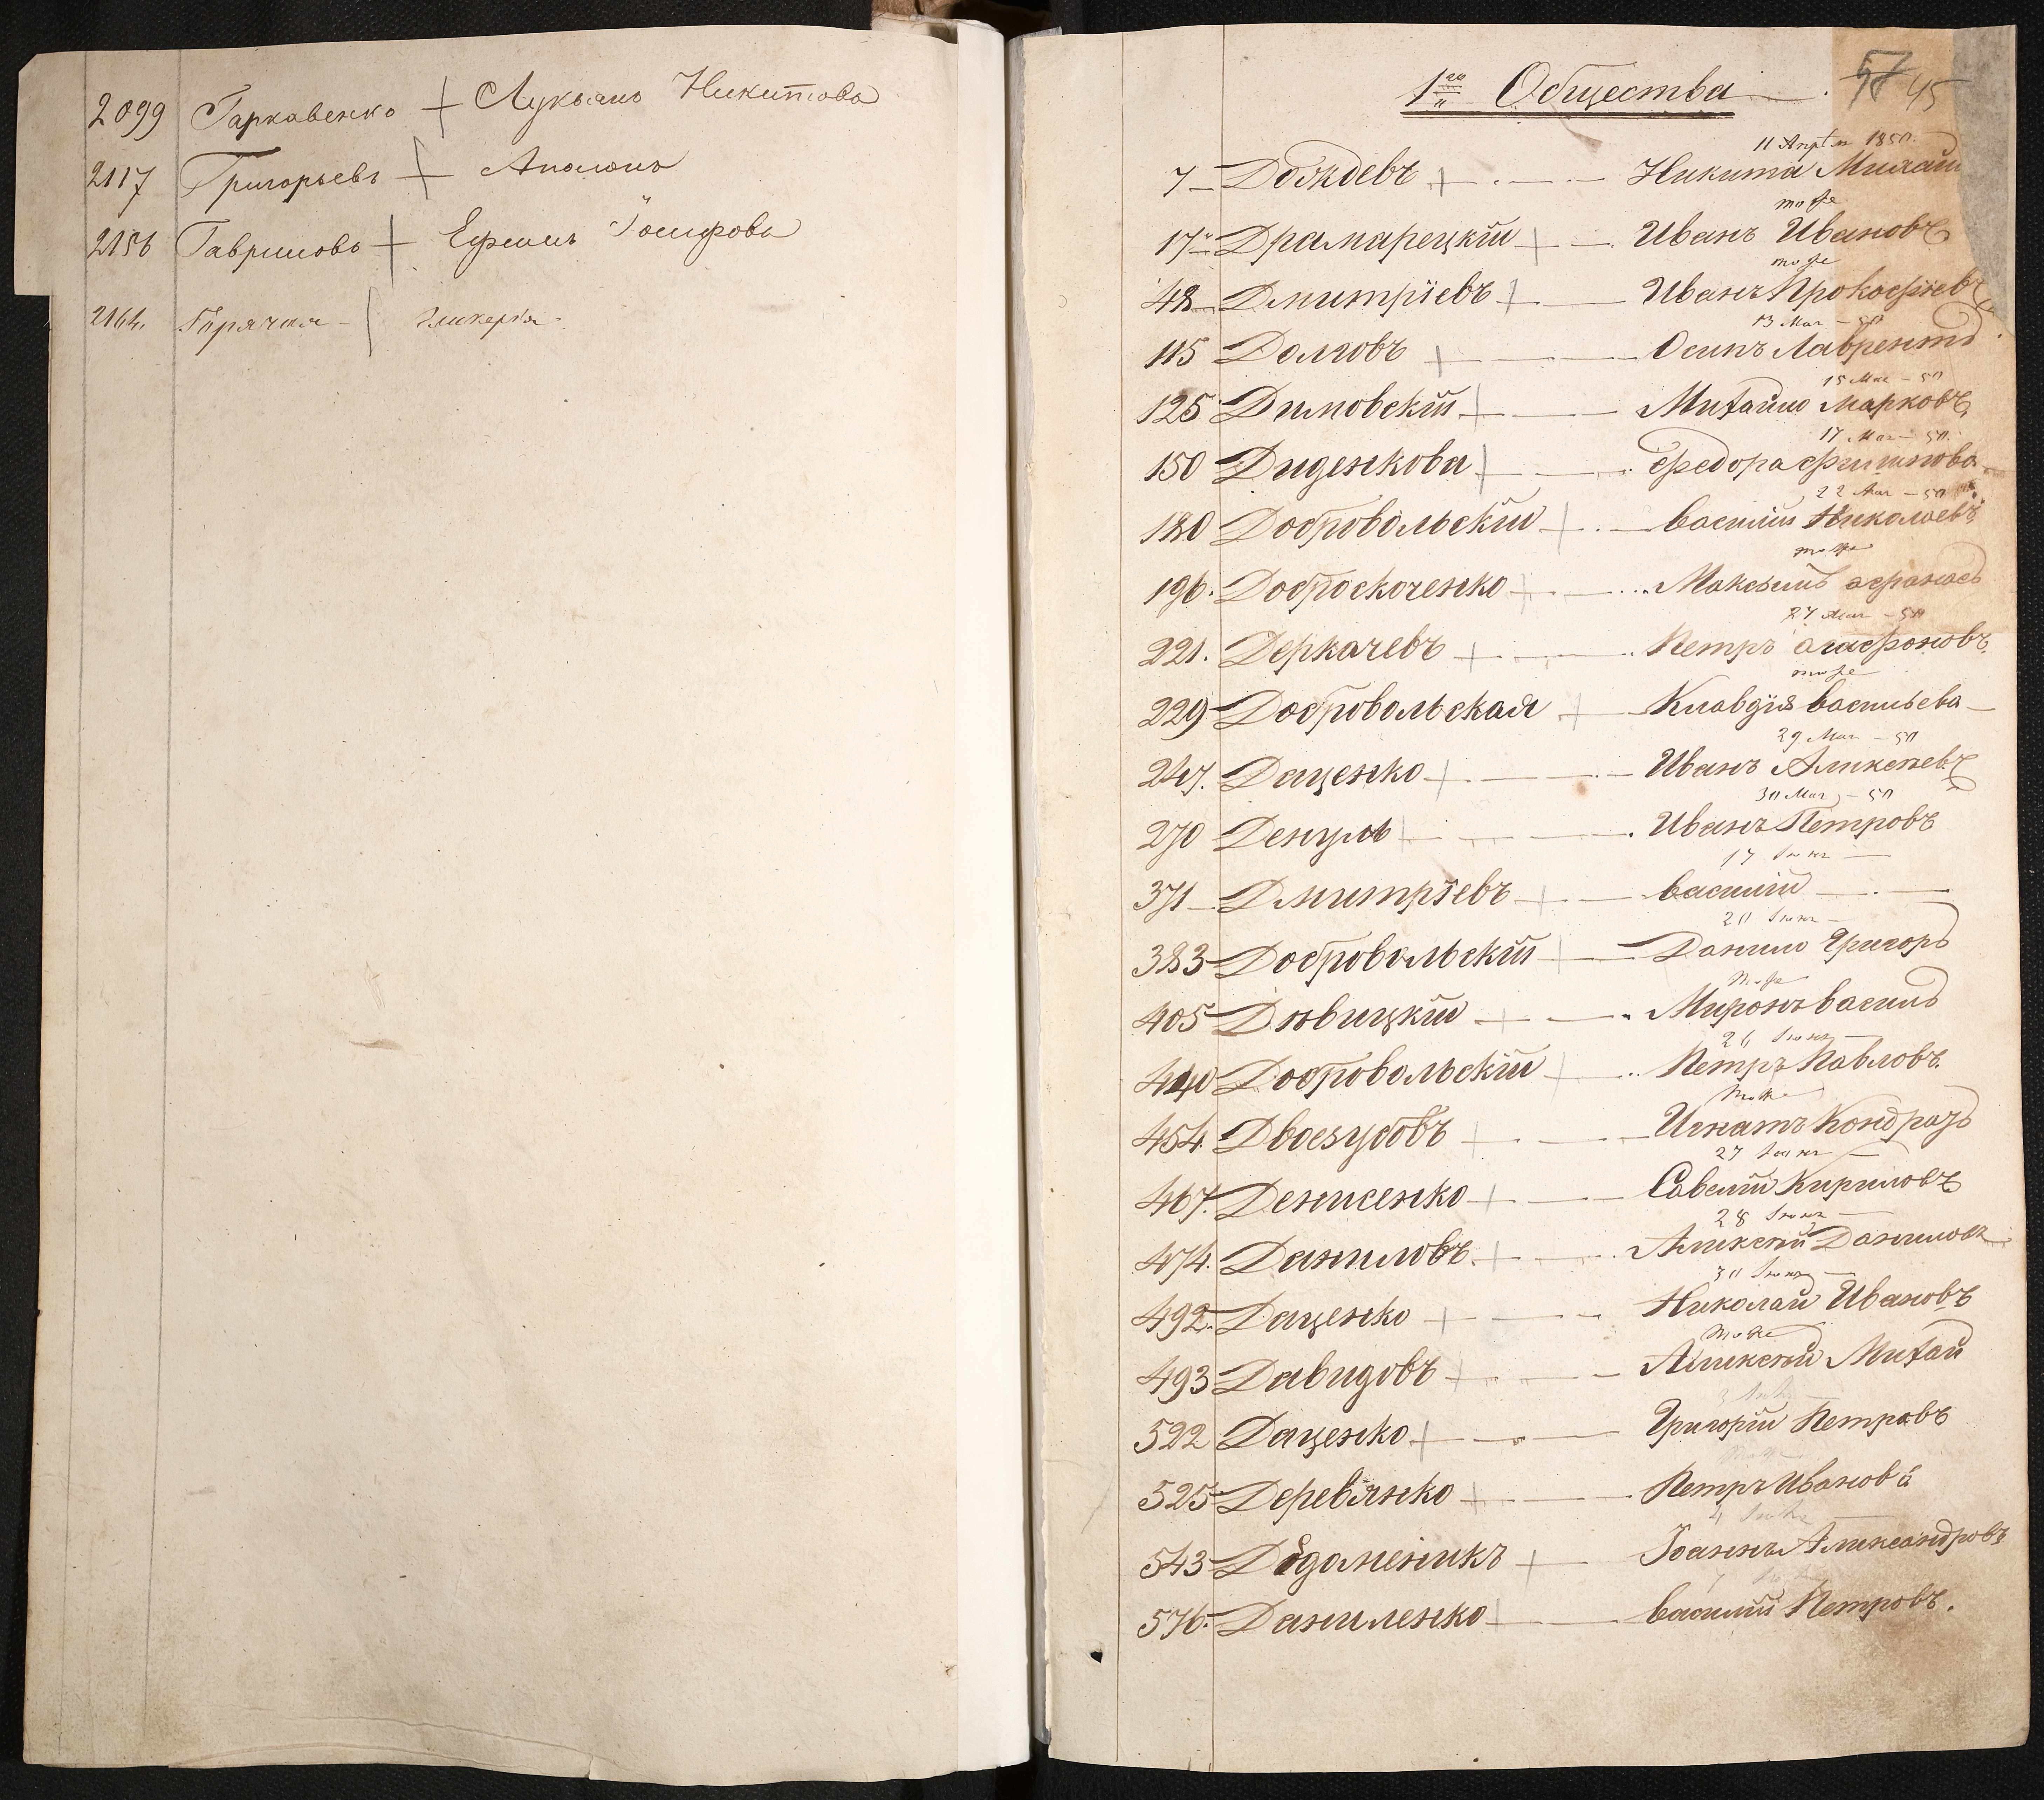 2099 Гаркавенко + Лукьянъ Никитова
2117 Григорьевъ + Аполонъ
2156 Гавриловъ + Ефимъ Іосифова
2164. Горячая - Гликерія.
57 45
1го Общества.
11 Апрля 1850.
7 Дождевъ + Никита Михай
тоже
17 Драмарецкій + Иванъ Ивановъ
тоже
48 Дмитріевъ + Иванъ Прокофіевъ
13 Мая - 50
115 Долговъ + Осипъ Лаврентъ
15 Мая - 50
125 Димовскій + Михайло Марковъ
17 Мая - 50.
150 Диденкова Федора Филипова
22 Мая - 50
180 Добровольскій + Василій Николаевъ
тоже
196. Доброскоченко + Максимъ Афанась
27 Мая - 50
221. Деркачевъ + Петръ Агафоновъ
тоже
229 Добровольская + Клавдія Васильева
29 Мая - 50
247. Даценко + Иванъ Аликсеевъ
30 Мая - 50
270 Денгуль Иванъ Петровъ
17 Іюня
371 Дмитріевъ + Василій
20 Іюня
383 Добровольскій Данило Григорь
тоже
405 Дѣвицкій + Миронъ Василь
26 Іюня
440 Добровольскій Петръ Павловъ.
тоже
454. Двоезубовъ + Игнатъ Кондраз
27 Іюня
467. Денисенко + Савелій Кириловъ
28 Іюня
474. Даниловъ. + Аликсѣй Даниловъ
30 Іюня
492. Даценко + Николай Ивановъ
тоже
493 Давидовъ + Аликсѣй Михай
522 Даценко + Григорій Петровъ
525 Деревянко + Петръ Ивановъ
543 + Іоаннъ Александровъ
576. Даниленко Василій Петровъ.